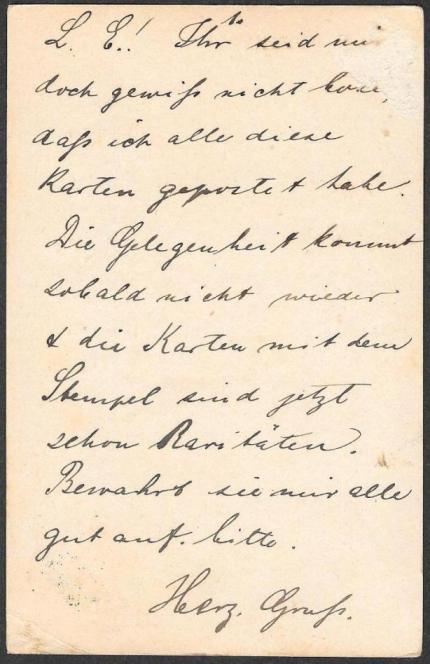 L. E.! Ihr seid mir
doch gewiß nicht böse,
daß ich alle diese
Karten gepostet habe.
Die Gelegenheit kommt
sobald nicht wieder
& die Karten mit dem
Stempel sind jetzt
schon Raritäten.
Bewahrt sie mir alle
gut auf. bitte.
Herz. Gruß.